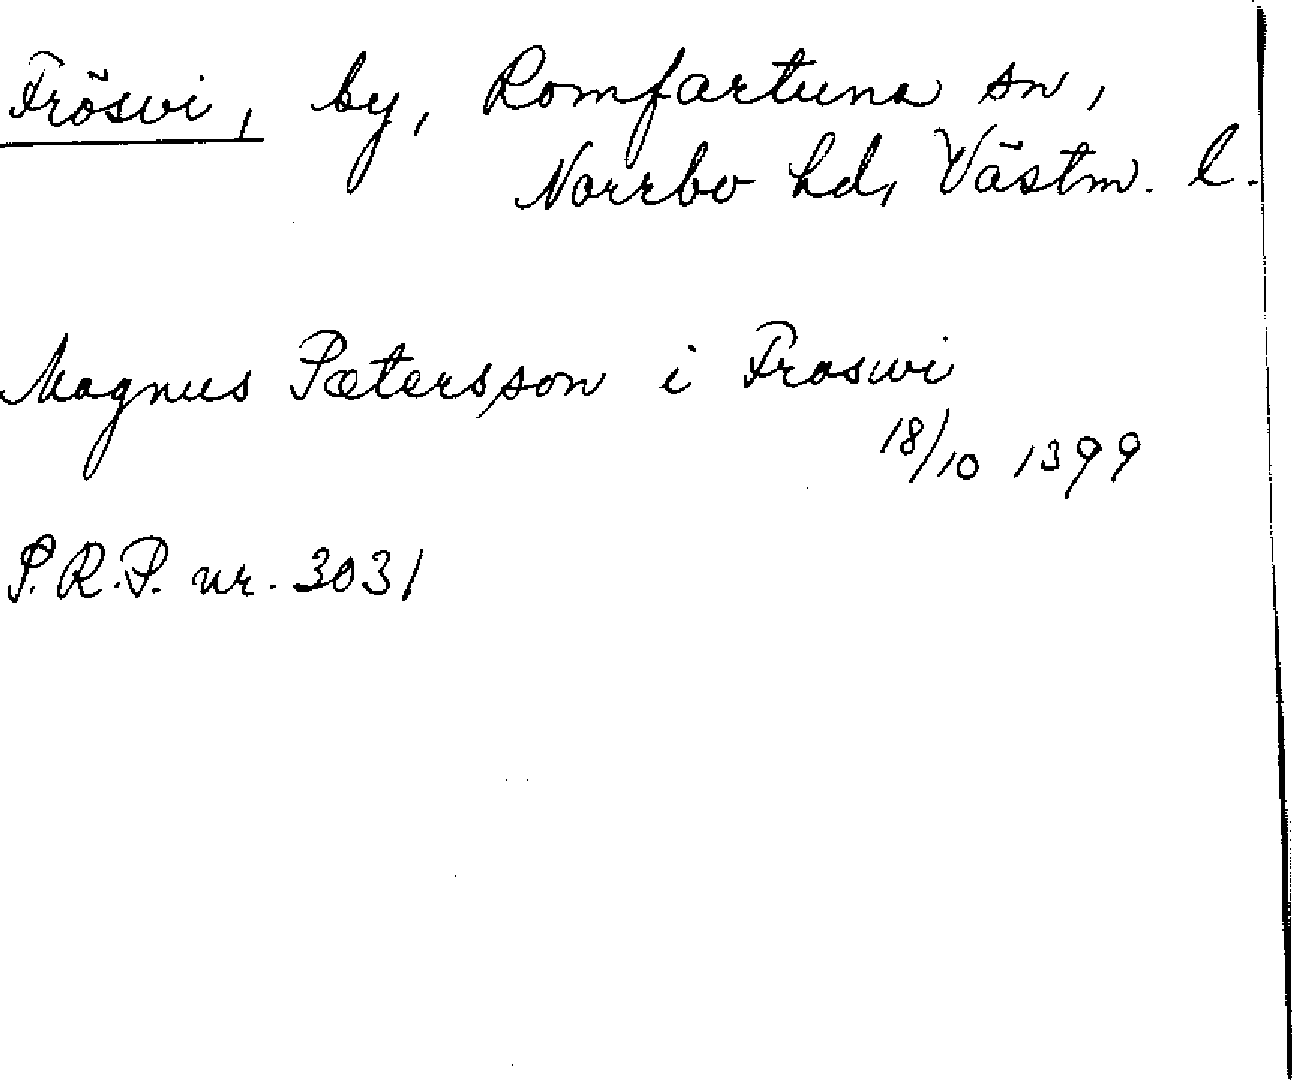 Frösvi, by, Romfartuna sn,
Norrbo hd, Västm. l.
Magnus Pætersson i Froswi
18/10 1399
S.R.P. nr. 3031